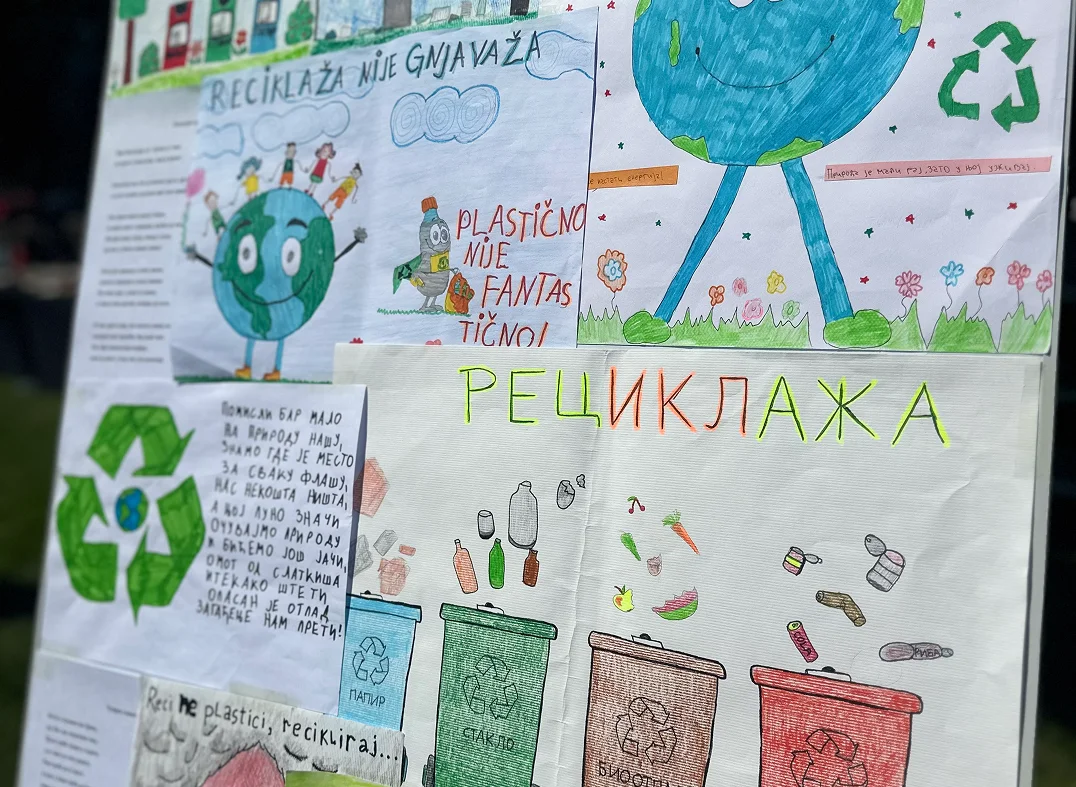 RECIKLAŽA NIJE GNJAVAŽA
PLASTIČNO
NIJE
FANTAS
TIČNO!
Природа је мали рај, зато у њој уживај
РЕЦИКЛАЖА
ПОМИСЛИ БАР МАЛО
НА ПРИРОДУ НАШУ,
ЗНАМО ГДЕ ЈЕ МЕСТО
ЗА СВАКУ ФЛАШУ,
НАС НЕКОШТА НИШТА,
А ЊОЈ ПУНО ЗНАЧИ
ОЧУВАЈМО ПРИРОДУ
И БИЋЕМО ЈОШ ЈАЧИ,
ОМОТ ОД СЛАТКИША
ИТЕКАКО ШТЕТИ
ОПАСАН ЈЕ ОТПАД
ЗАГАЂЕЊЕ НАМ ПРЕТИ!
COLA
РИБА
ПАПИР
СТАКЛО
Reci ne plastici, recikliraj...